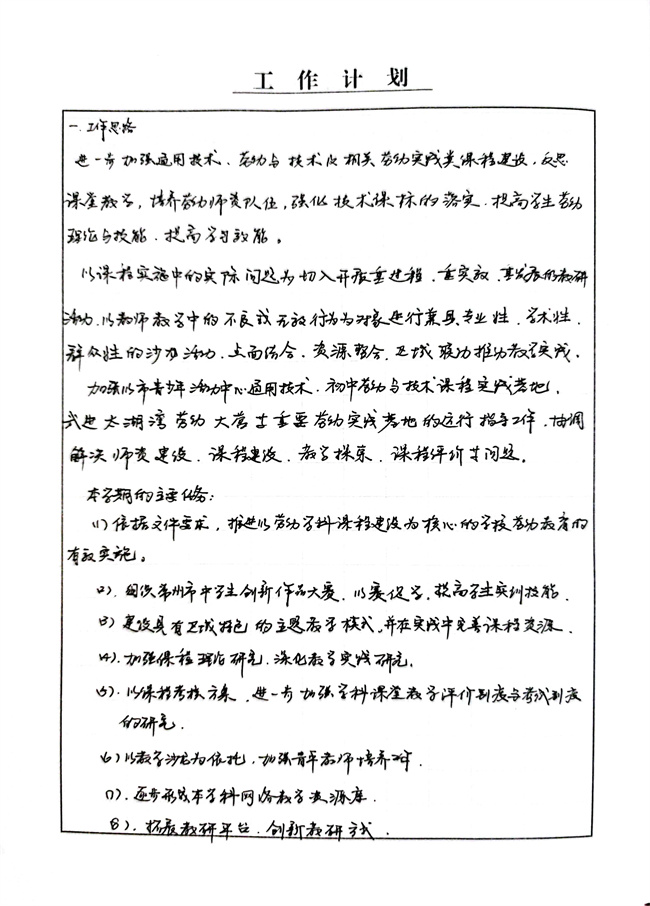 工作计划
一.工作思路
进一步加强通用技术、劳动与技术及相关劳动实践类课程建设，反思
课堂教学，培养劳动师资队伍，强化技术课标的落实.提高学生劳动
理论与技能.提高学习效能。
以课程实施中的实际问题为切入开展重过程.重实效.重发展的教研
活动.以教师教学中的不良或无效行为为对象进行兼具专业性.学术性.
群众性的沙龙活动.上面结合.资源整合.区域联动推动教学实践.
加强以市青少年活动中心通用技术.初中劳动与技术课程实践基地.
武进太湖湾劳动大营等重要劳动实践基地的运行指导工作.协调
解决师资建设.课程建设.教学探索.课程评价等问题。
本学期的主要任务：
（1）依据文件要求，推进以劳动学科课程建设为核心的学校劳动教育的
有效实施。
（2）.组织常州市中学生创新作品大赛.以赛促学.提高学生实训技能.
（3）建设具有区域特色的主题教学模式，并在实践中完善课程资源.
（4）.加强课程理论研究.深化教学实践研究.
（5）.以课程考核方案.进一步加强学科课堂教学评价制度与考试制度
的研究.
（6）以教学沙龙为依托，加强青年教师培养工作.
（7）.逐步形成本学科网络教学资源库.
（8）.拓展教研平台.创新教研方式.